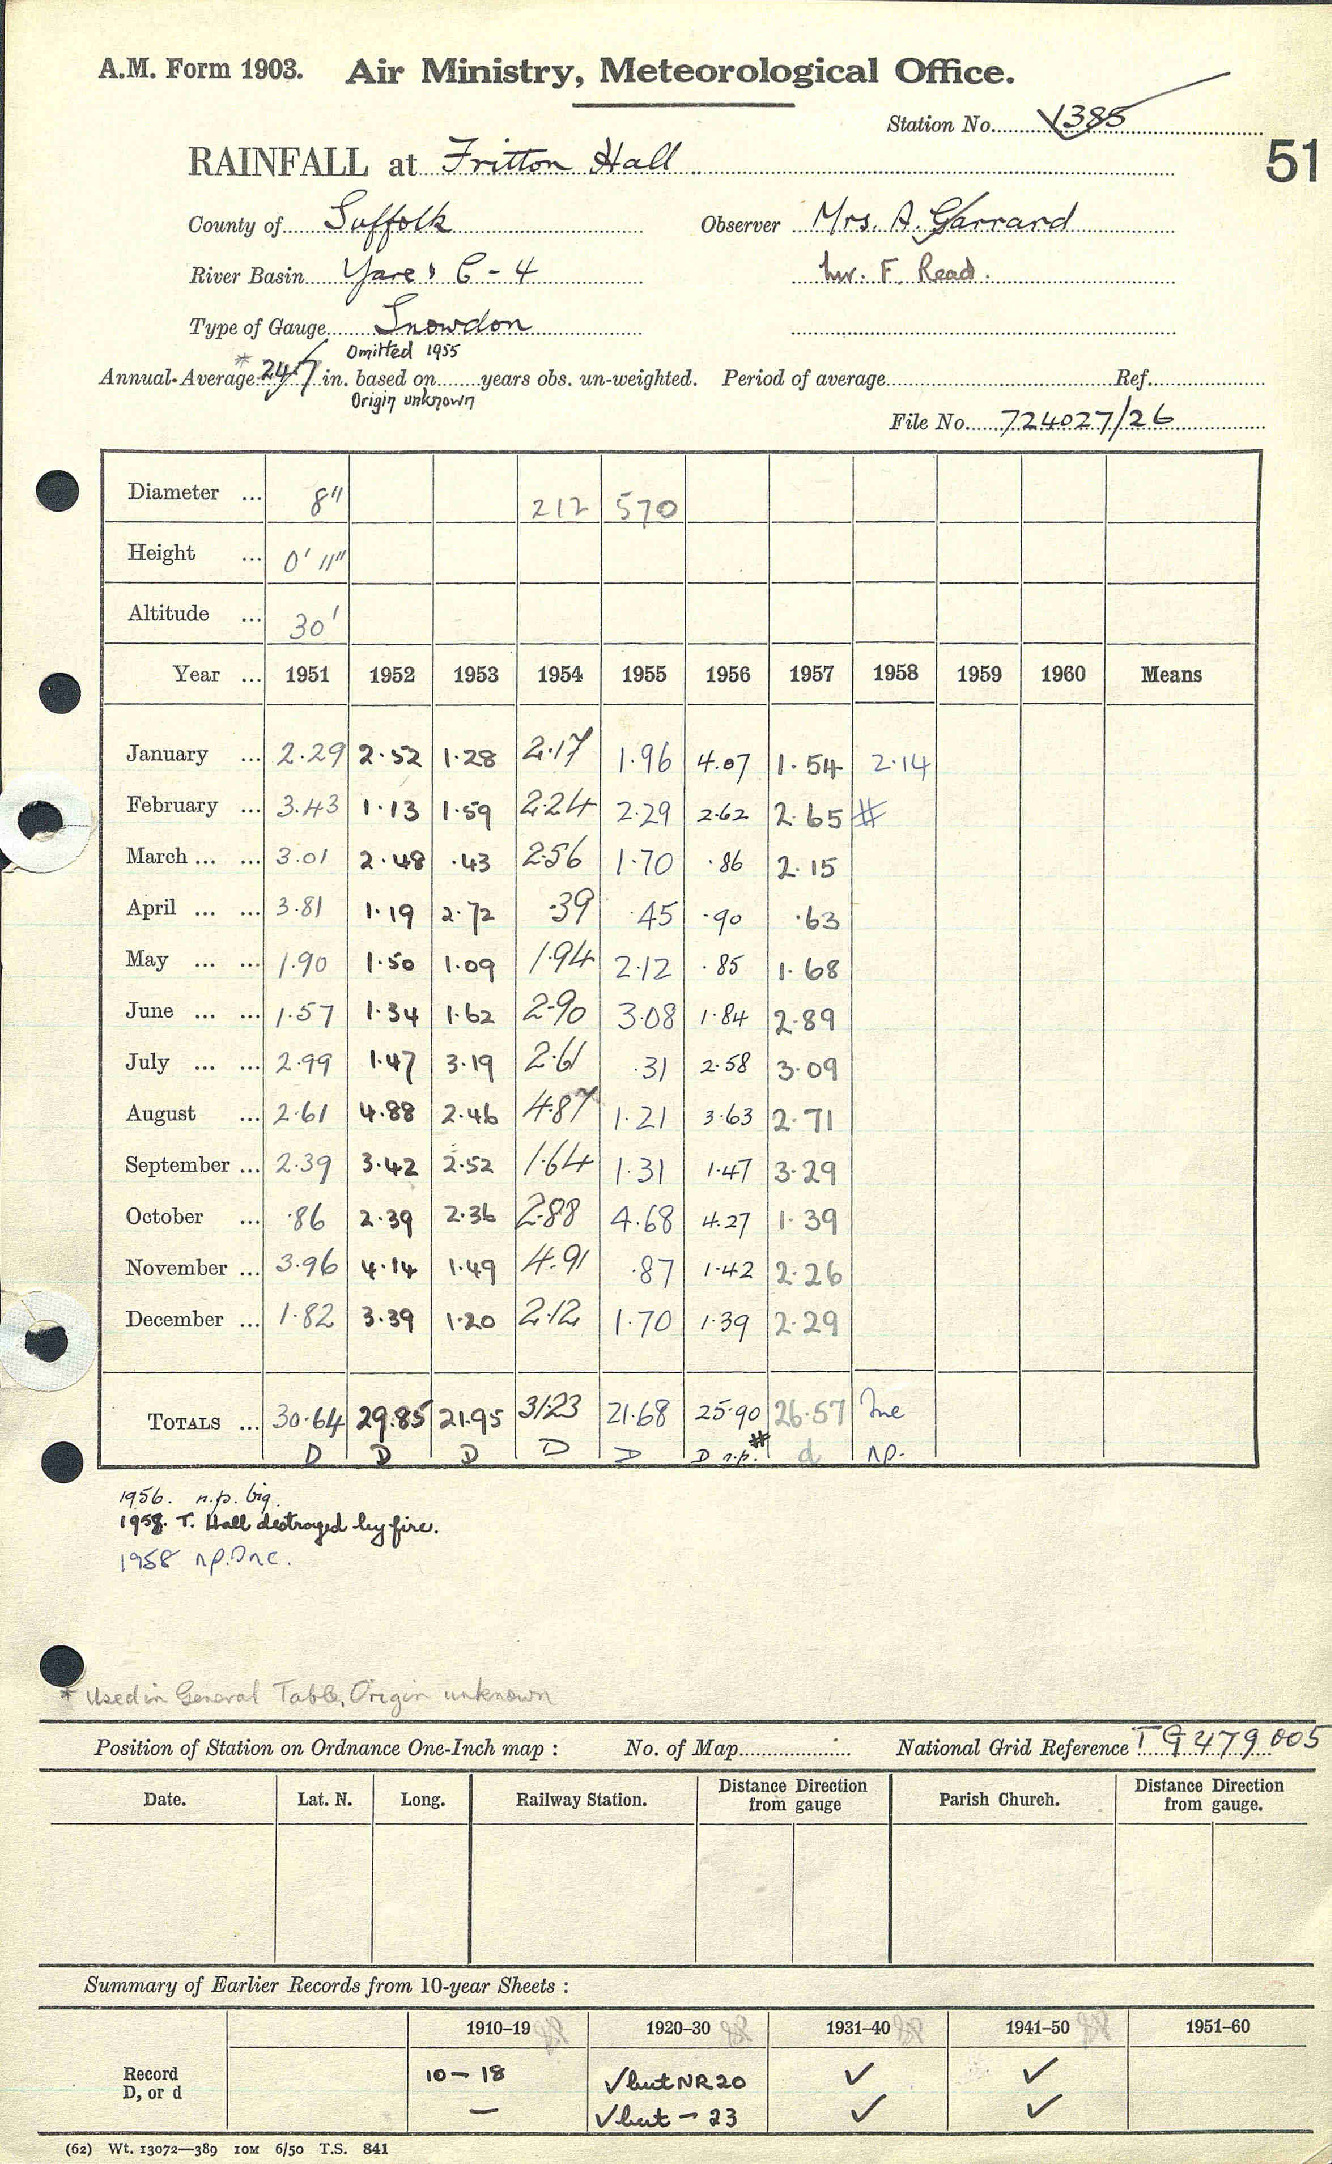 A.M. Form 1903. Air Ministry, Meteorological Office.
Station No. V385
51
RAINFALL at Fritton Hall
County of Suffolk Observer Mrs. A. Garrard
River Basin Yare & C-4 Mr. F. Read.
Type of Gauge Snowdon
Omitted 1955
Annual-Average *24.7 in. based on years obs. un-weighted. Period of average Ref.
Origin unknown
File No. 724027/26
Diameter ... 8" 212 570
Height ... 0' 11"
Altitude ... 30'
Year ... 1951 1952 1953 1954 1955 1956 1957 1958 1959 1960 Means
January ... 2.29 2.52 1.28 2.17 1.96 4.07 1.54 2.14
February ... 3.43 1.13 1.59 2.24 2.29 2.62 2.65 #
March ... ... 3.01 2.48 .43 2.56 1.70 .86 2.15
April ... ... 3.81 1.19 2.72 .39 .45 .90 .63
May ... ... 1.90 1.50 1.09 1.94 2.12 .85 1.68
June ... ... 1.57 1.34 1.62 2.90 3.08 1.84 2.89
July ... ... 2.99 1.47 3.19 2.61 .31 2.58 3.09
August ... 2.61 4.88 2.46 4.87 1.21 3.63 2.71
September ... 2.39 3.42 2.52 1.64 1.31 1.47 3.29
October ... .86 2.39 2.36 2.88 4.68 4.27 1.39
November ... 3.96 4.14 1.49 4.91 .87 1.42 2.26
December ... 1.82 3.39 1.20 2.12 1.70 1.39 2.29
TOTALS ... 30.64 29.85 21.95 31.23 21.68 25.90 26.57 Inc
D D D D D D n.p.# d n.p.
1956. n.p. big.
1958. T. Hall destroyed by fire.
1958 n.p. Inc.
* Used in General Table, Origin unknown
Position of Station on Ordnance One-Inch map : No. of Map National Grid Reference TG 479 005
Date. Lat. N. Long. Railway Station. Distance Direction from gauge Parish Church. Distance Direction from gauge.
Summary of Earlier Records from 10-year Sheets :
1910-19 1920-30 1931-40 1941-50 1951-60
Record 10-18 ✓ but NR 20 ✓ ✓
D, or d — ✓ but - 23 ✓ ✓
(62) Wt. 13072—389 10M 6/50 T.S. 841